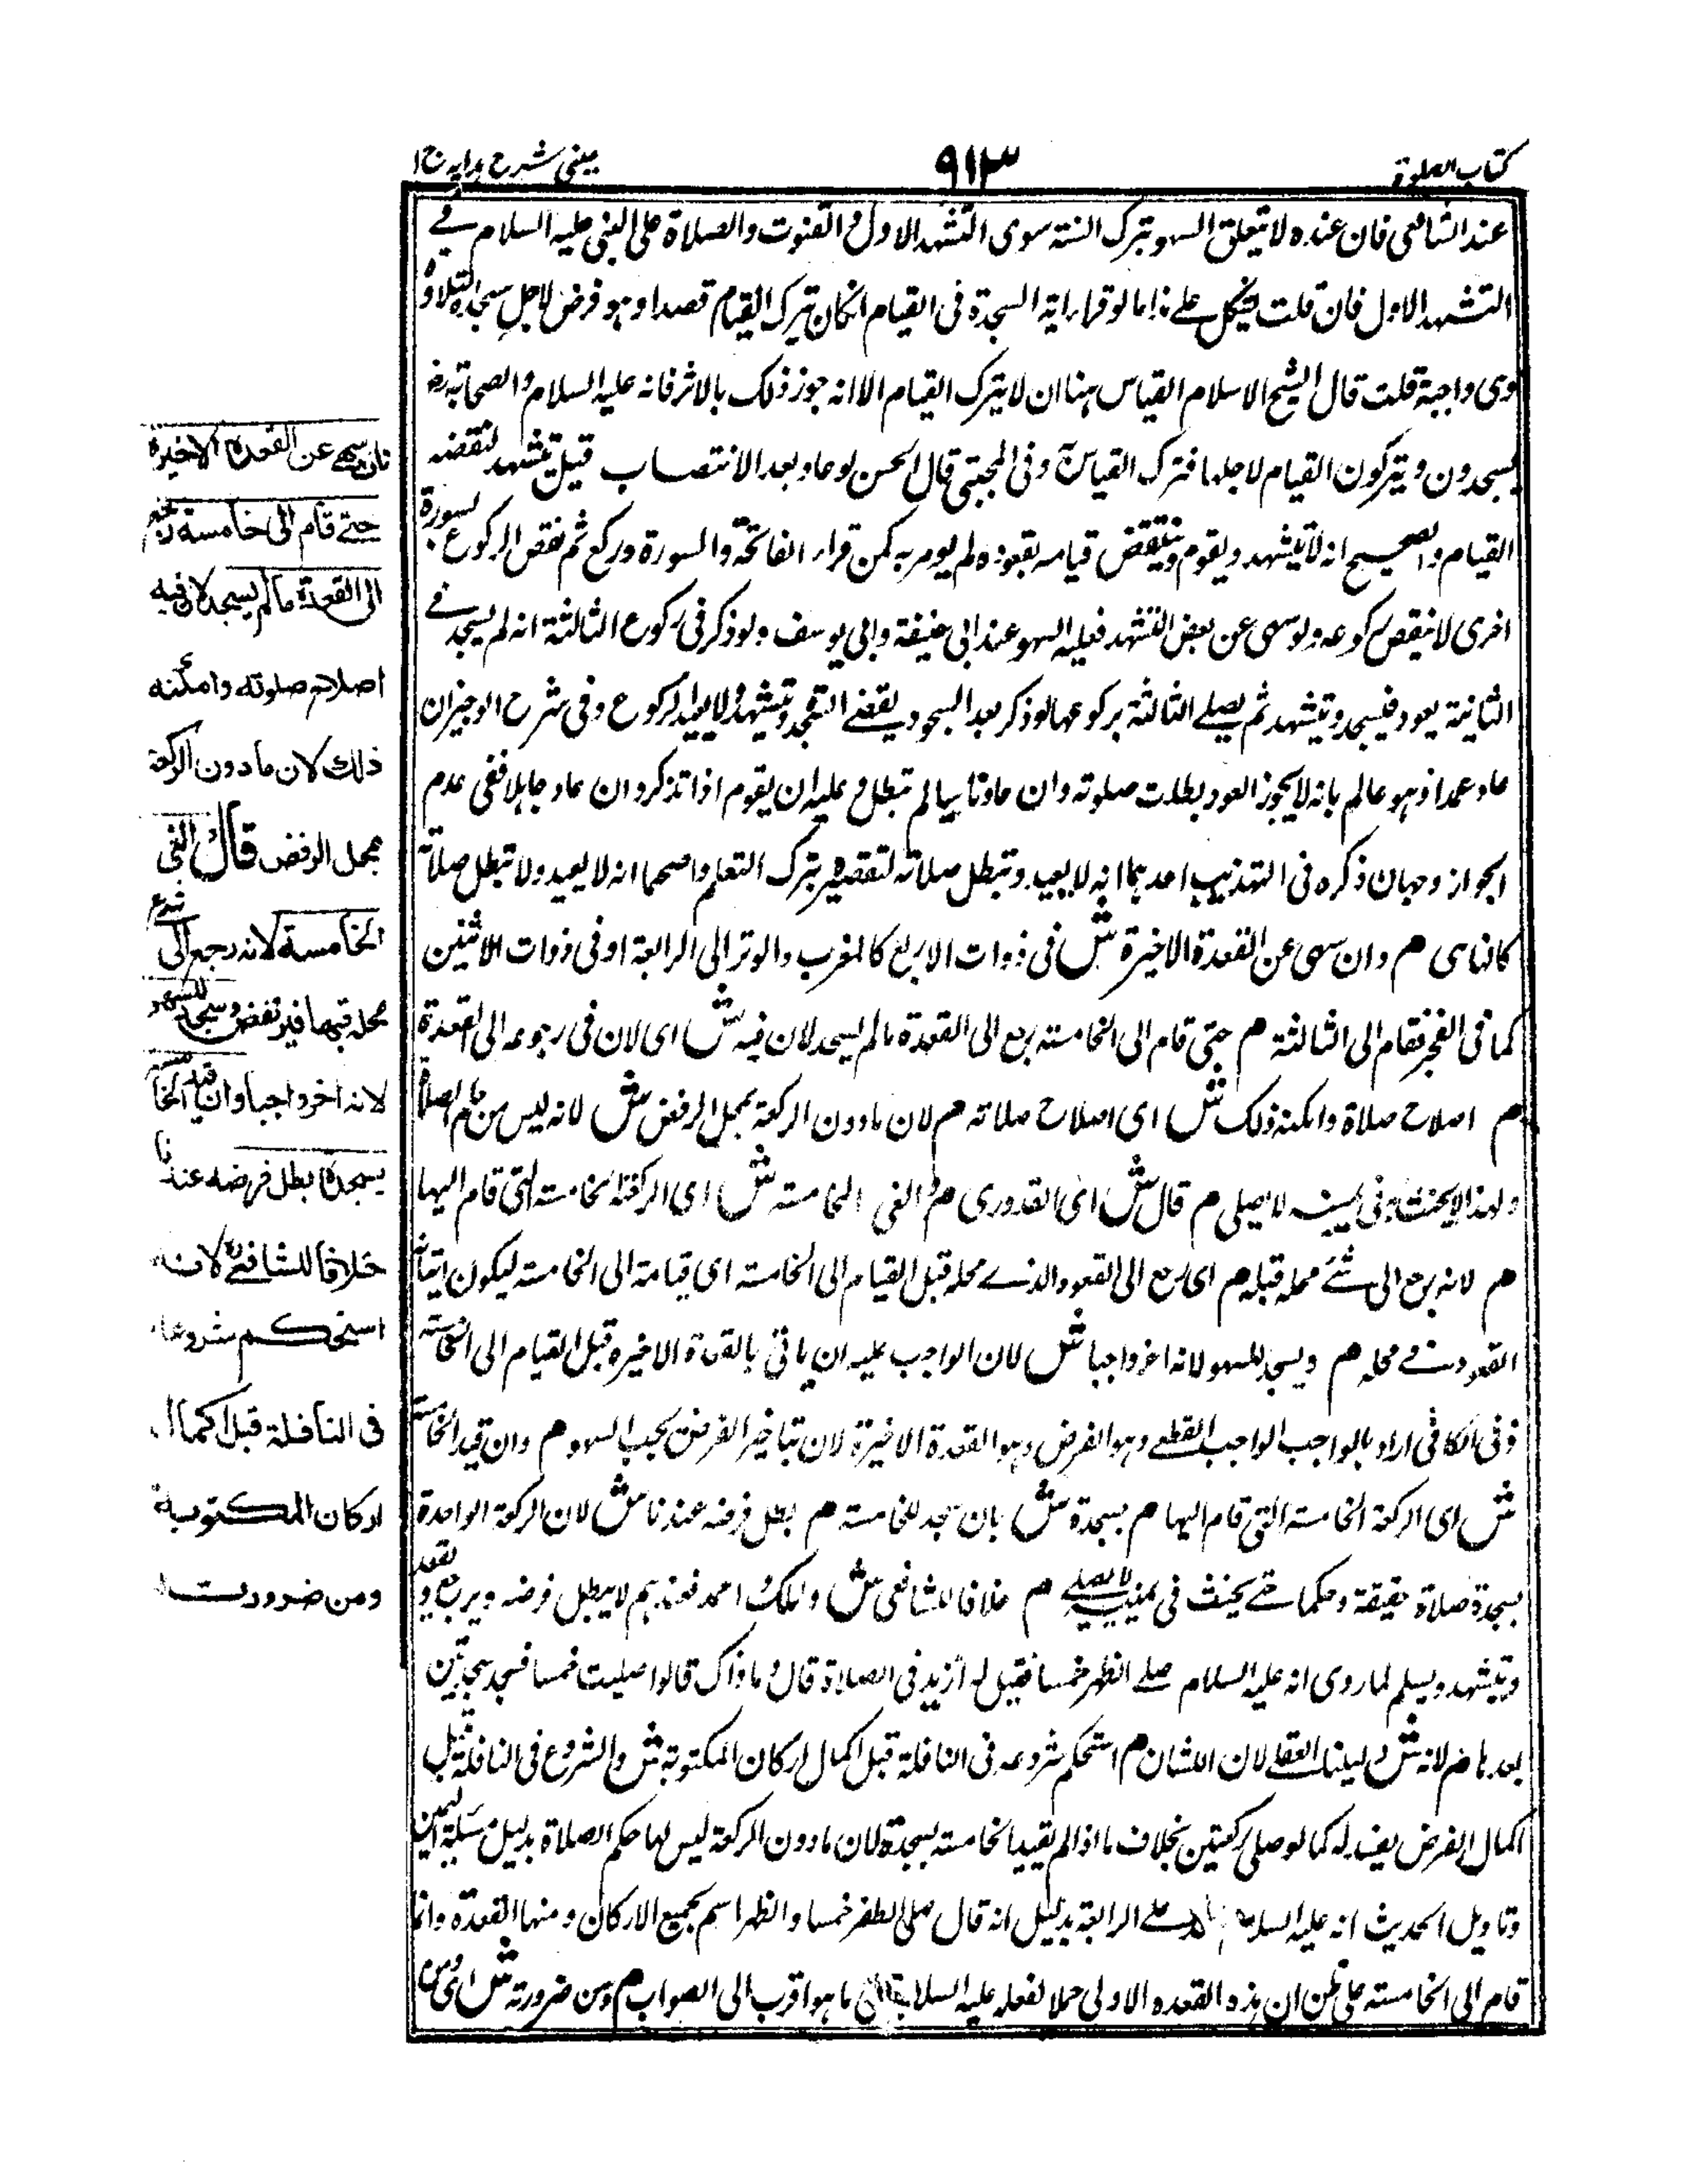 كتاب الصلوة
٩١٣
عينى شرح هدايه ج ١
عند الشافعى فان عنده لا يتعلق السهو بترك السنة سوى التشهد الاول و القنوت والصلاة على النبى عليه السلام فے
التشهد الاول فان قلت يشكل على هذا ما لو قرا اية السجدة فى القيام انكان يترك القيام قصدا وهو فرض لاجل سجدة التلاوة
وهى واجبة قلت قال الشيخ الاسلام القياس هنا ان لا يترك القيام الا انه جوز ذلك بالاثر فانه عليه السلام والصحابة رضـ
يسجدون ويتركون القيام لاجلها فترك القياس به وفى المجتبى قال الحسن لو عاد بعد الانتصاب قيل يتشهد لنقضه
القيام والصحيح انه لا يتشهد ويقوم و ينتقض قيامه بقعوده لم يومر به كمن قرا الفاتحة والسورة وركع ثم نقض الركوع بسورة
اخرى لا ينقض ركوعه ولو سهى عن بعض التشهد فعليه السهو عند ابى حنيفة وابى يوسف ولو ذكر فى ركوع الثالثة انه لم يسجد فے
الثانية يعود فيسجد ويتشهد ثم يصلے الثالثة بركوعها لو ذكر بعد السجود يقضے السجدة ويتشهد ولا يعيد الركوع وفى شرح الوجيز ان
عاد عمدا وهو عالم بانه لا يجوز العود بطلت صلوته وان عاد ناسيا لم تبطل و عليه ان يقوم اذا تذكر وان عاد جاهلا ففى عدم
الجواز وجهان ذكره فى التهذيب احدهما انه لا يعيد وتبطل صلاته لتقصيره بترك التعلم واصحهما انه لا يعيد ولا تبطل صلاته
كالناسى م وان سهى عن القعدة الاخيرة ش فى ذوات الاربع كالمغرب والوتر الى الرابعة او فى ذوات الاثنين
كما فى الفجر فقام الى الثالثة م حتى قام الى الخامسة رجع الى القعدة ما لم يسجد لان فيه ش اى لان فى رجوعه الى القعدة
م اصلاح صلاة وامكنه ذلك ش اى اصلاح صلاته م لان ما دون الركعة بمحل الرفض ش لانه ليس من تمام الصلاة
ولهذا لا يحنث به فى يمينه لا يصلى م قال ش اى القدورى م والغى الخامسة ش اى الركعة الخامسة التى قام اليها
م لانه رجع الى شئ محله قبله م اى رجع الى القعود الذے محله قبل القيام الى الخامسة اى قيامه الى الخامسة ليكون اتيانه
القعود فے محله م ويسجد للسهو لانه اخر واجبا ش لان الواجب عليه ان ياتى بالقعدة الاخيرة قبل القيام الى الخامسة
وفى الكافى اراد بالواجب الواجب القطعے وهو الفرض وهو القعدة الاخيرة لان بتاخير الفرض يجب السهو م وان قيد الخامسة
ش اى الركعة الخامسة التى قام اليها م بسجدة ش بان سجد للخامسة م بطل فرضه عندنا ش لان الركعة الواحدة
بسجدة صلاة حقيقة وحكما حتے يحنث فى يمينه لا يصلے م خلافا للشافعى ش ومالك و احمد فعندهم لا يبطل فرضه ويرجع و يقعد
ويتشهد ويسلم لما روى انه عليه السلام صلے الظهر خمسا فقيل له ازيد فى الصلاة قال وما ذاك قالوا صليت خمسا فسجد سجدتين
بعدها م لانه ش دليلنا العقلے لان الشان م استحكم شروعه فى النافلة قبل اكمال اركان المكتوبة ش والشروع فى النافلة قبل
اكمال الفرض يفسده كما لو صلى ركعتين بخلاف ما اذا لم يقيد الخامسة بسجدة لان ما دون الركعة ليس لها حكم الصلاة بدليل مسئلة اليمين
وتاويل الحديث انه عليه السلام قعد علے الرابعة بدليل انه قال صلى الظهر خمسا والظهر اسم لجميع الاركان ومنها القعدة وانما
قام الى الخامسة على ظن ان هذه القعدة الاولى حملا لفعله عليه السلام على ما هو اقرب الى الصواب م ومن ضرورته ش اى ومن
فان سهى عن القعدة الاخيرة
حتے قام الى خامسة رجع
الى القعدة ما لم يسجد لان فيه
اصلاح صلوته وامكنه
ذلك لان ما دون الركعة
بمحل الرفض قال والغى
الخامسة لانه رجع الى شئ
محله قبلها فيرتفض ويسجد للسهو
لانه اخر واجبا وان قيد الخامسة
بسجدة بطل فرضه عندنا
خلافا للشافعے لانه
استحكم شروعه
فى النافلة قبل اكمال
اركان المكتوبة
ومن ضرورته